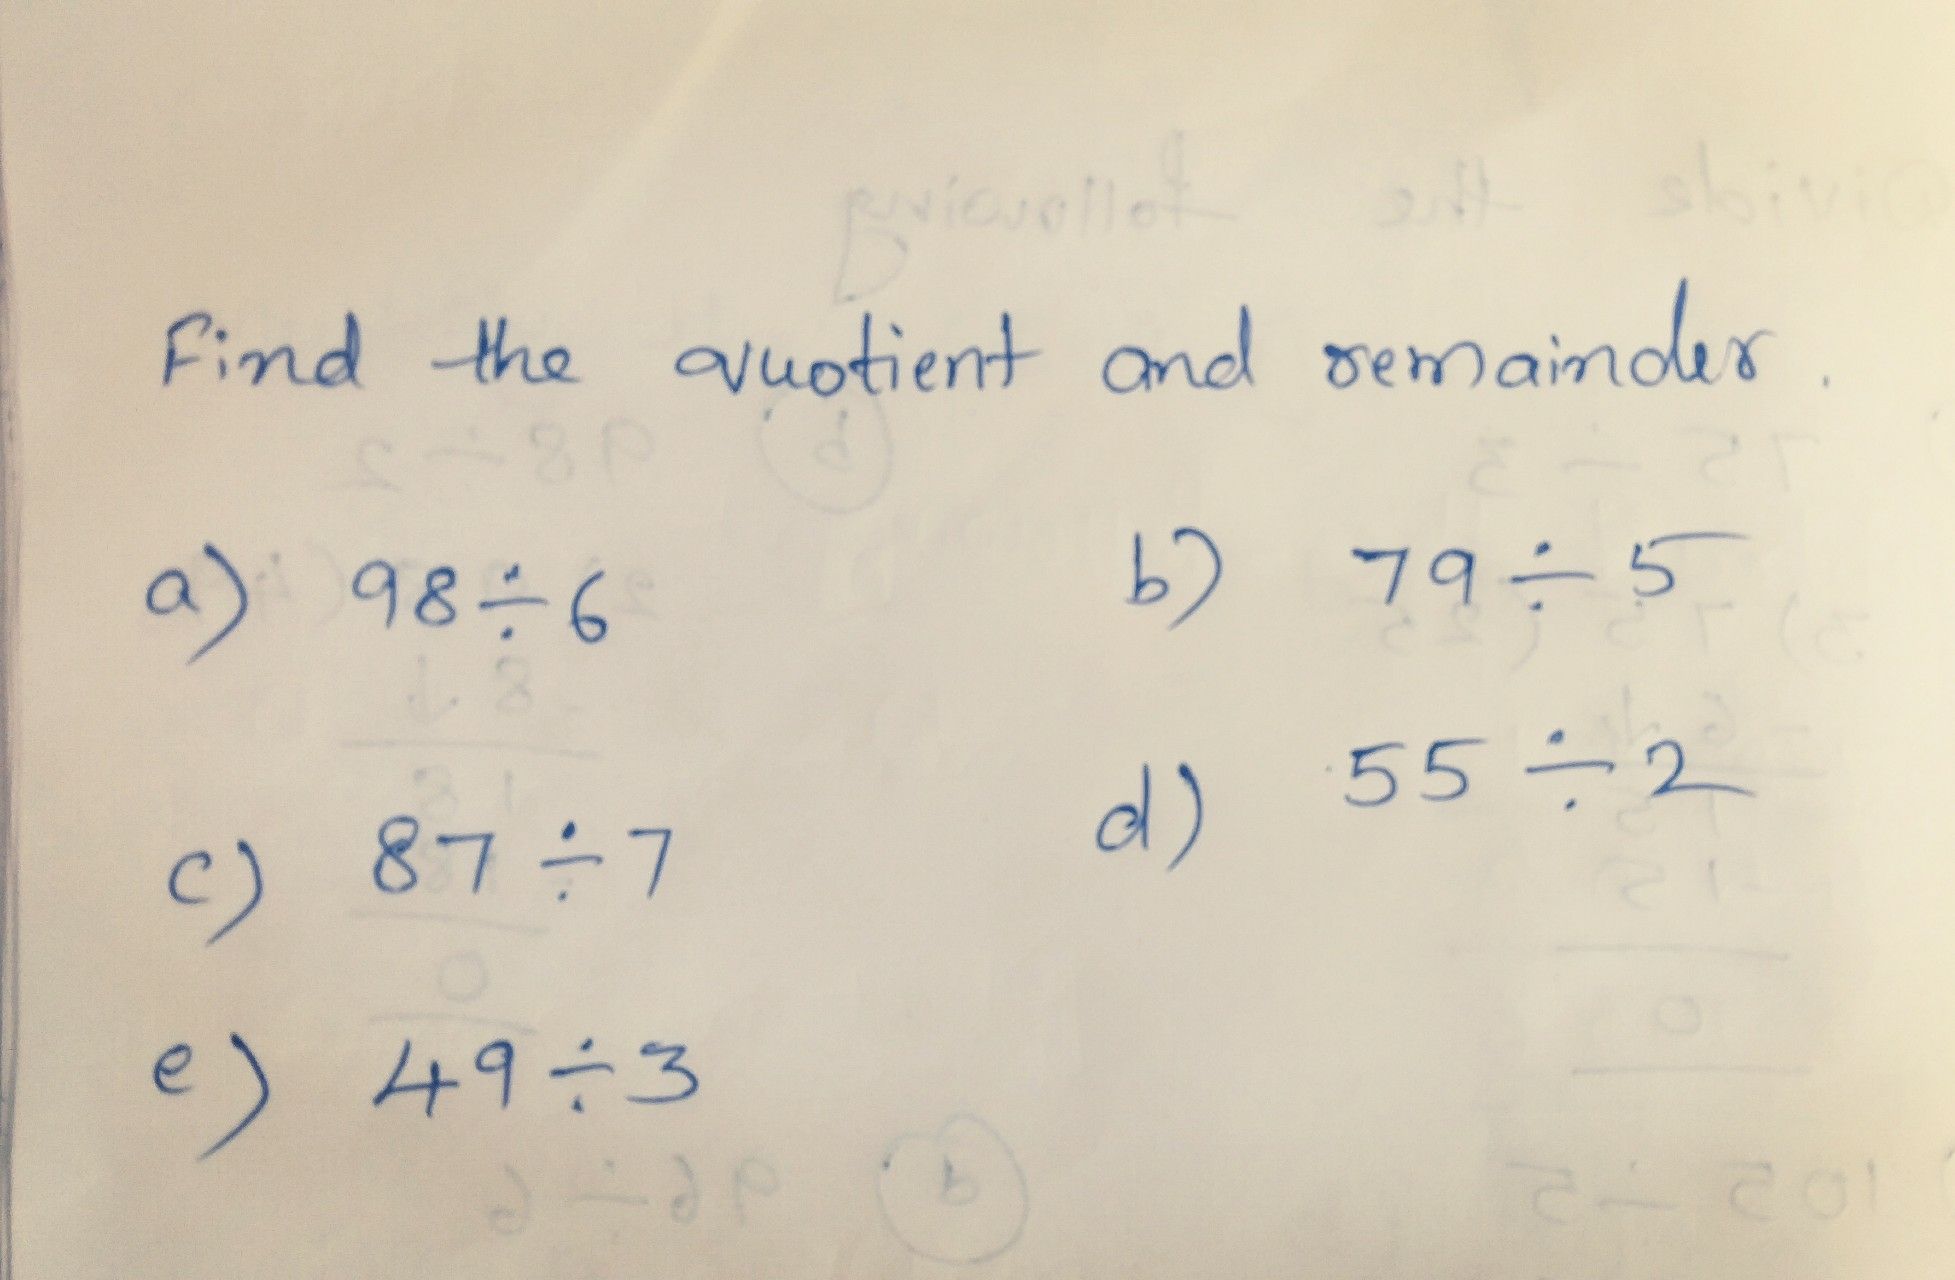 Find the quotient and remainder.
a) 98÷6 b) 79÷5
c) 87÷7 d) 55÷2
e) 49÷3